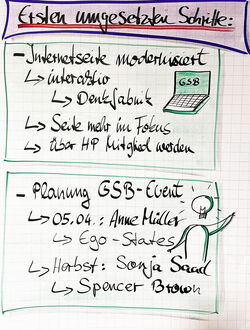 Ersten umgesetzten Schritte:
- Internetseite modernisiert
↳ interaktiv
↳ Denkfabrik
GSB
↳ Seite mehr im Fokus
↳ über HP Mitglied werden
- Planung GSB-Event
↳ 05.04.: Anne Müller
↳ Ego-States
↳ Herbst: Sonja Saad
↳ Spencer Brown